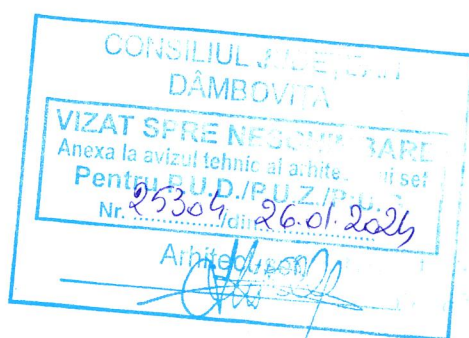 CONSILIUL JUDEȚEAN
DÂMBOVIȚA
VIZAT SPRE NESCHIMBARE
Anexa la avizul tehnic al arhitectului șef
Pentru P.U.D./P.U.Z./P.U.G.
Nr. 25304 /din 26.01.2024
Arhitect șef